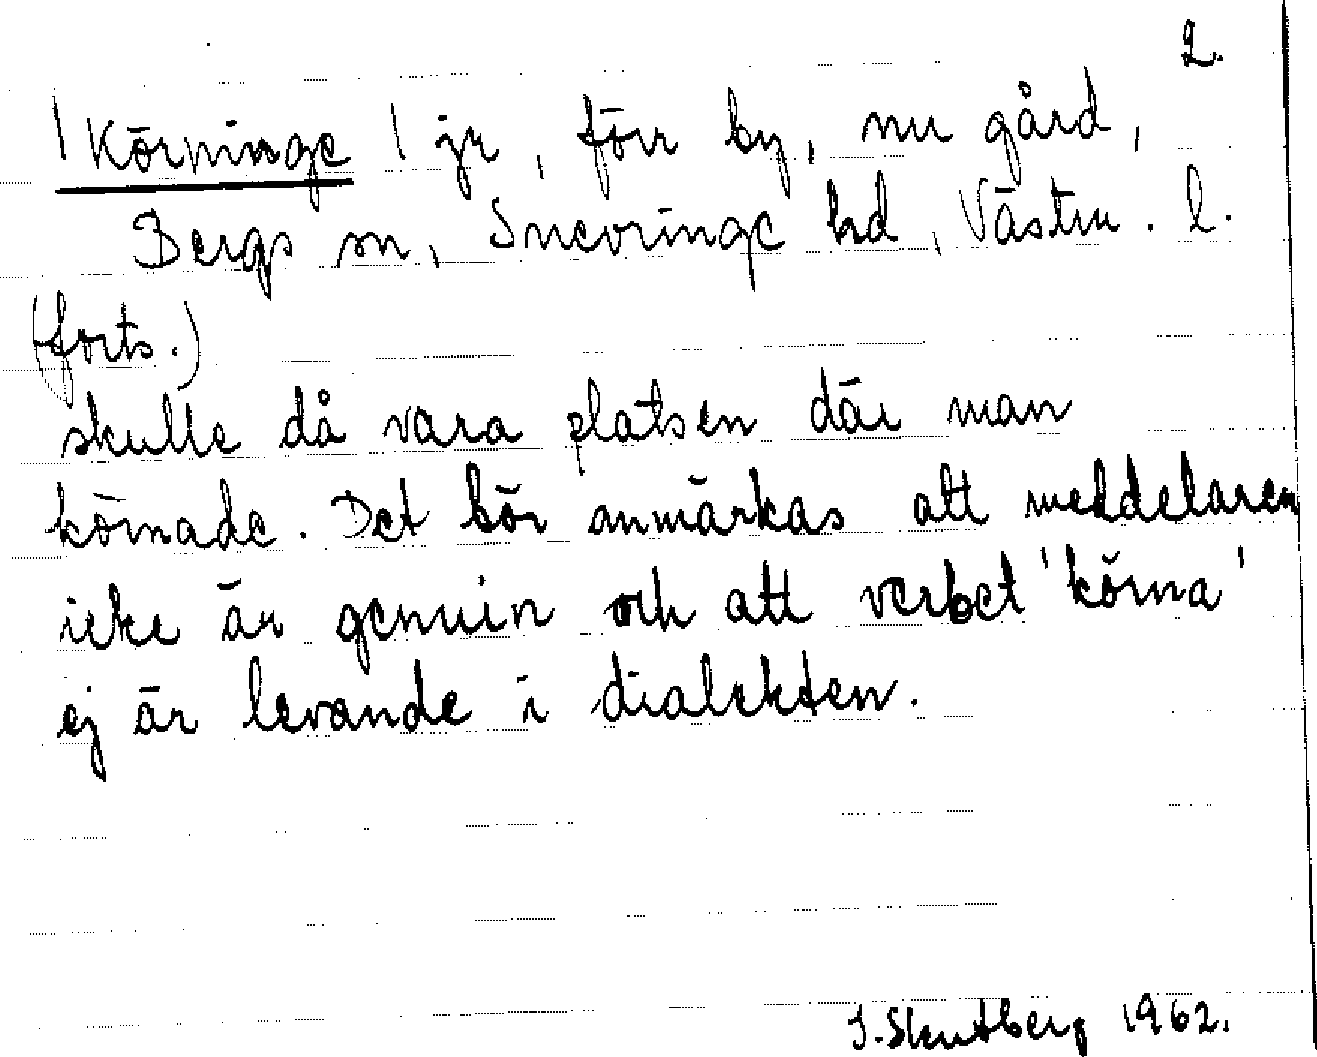 2.
| Körninge | jr, förr by, nu gård,
Bergs sn, Snevringe hd, Västm. l.
(forts.)
skulle då vara platsen där man
körnade. Det bör anmärkas att meddelaren
icke är genuin och att verbet 'körna'
ej är levande i dialekten.
1962.